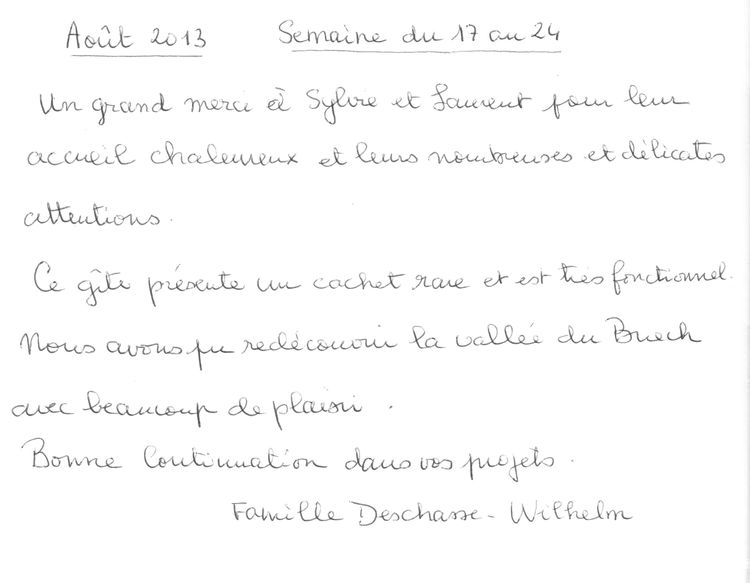 Août 2013 Semaine du 17 au 24
Un grand merci à Sylvie et Laurent pour leur
accueil chaleureux et leurs nombreuses et délicates
attentions.
Ce gîte présente un cachet rare et est très fonctionnel.
Nous avons pu redécouvrir la vallée du Buech
avec beaucoup de plaisir.
Bonne Continuation dans vos projets.
Famille Deschasse - Wilhelm